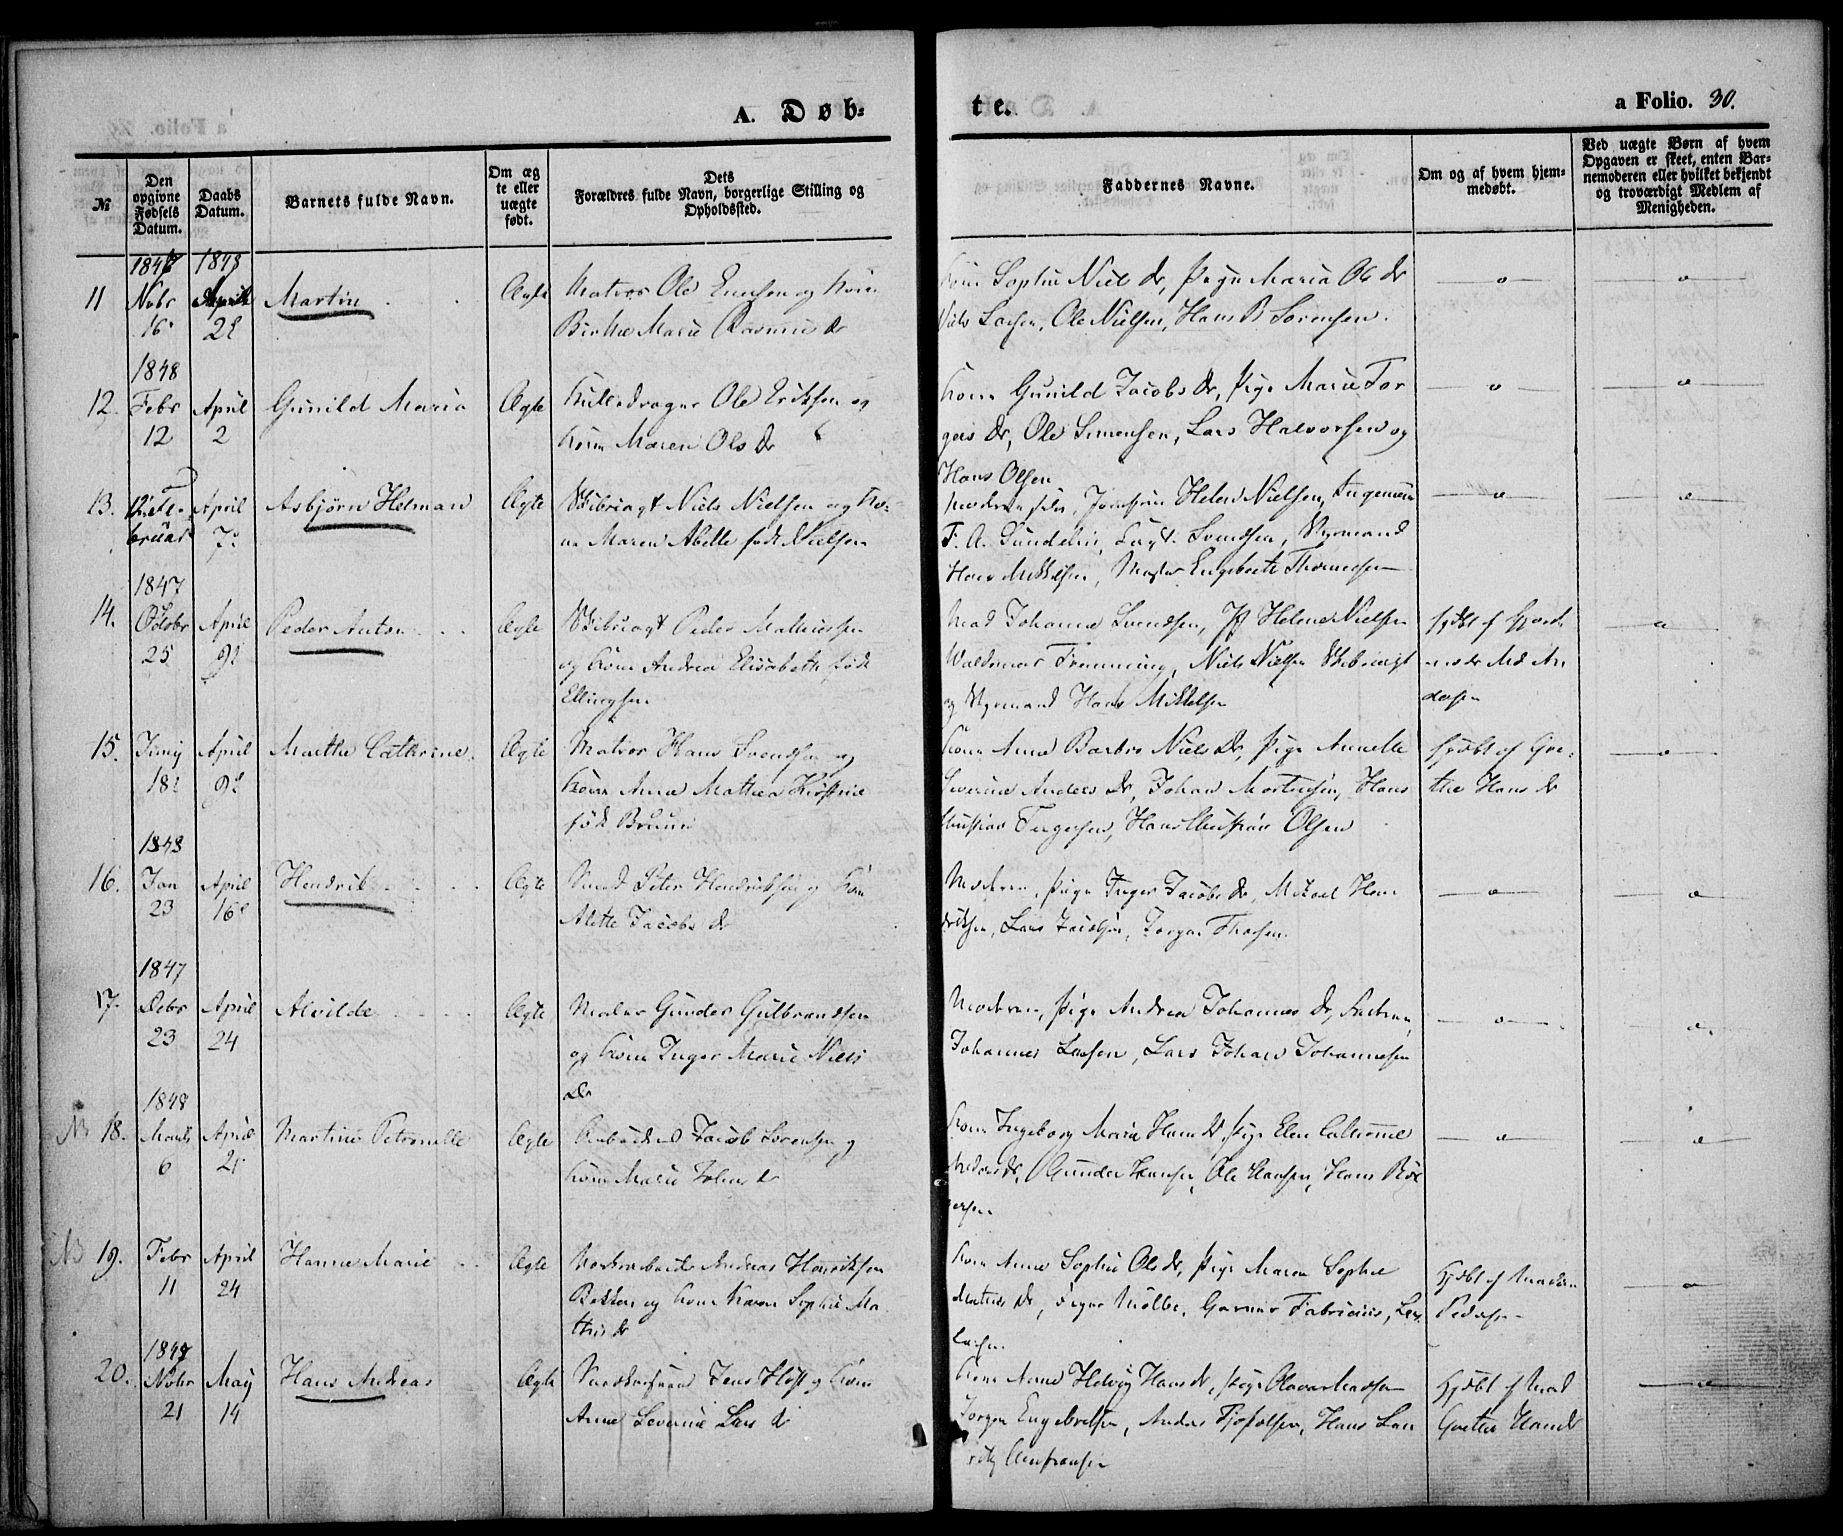 A. Døb-
te.
a Folio. 30.
№
Den opgivne Fødsels Datum.
Daabs Datum.
Barnets fulde Navn.
Om ægte eller uægte født.
Dets Forældres fulde Navn, borgerlige Stilling og Opholdssted.
Faddernes Navne.
Om og af hvem hjemmedøbt.
Ved uægte Børn af hvem Opgaven er skeet, enten Barnemoderen eller hvilket bekjendt og troværdigt Medlem af Menigheden.
1847 1848
11 Novbr 16 April 2 Martin Ægte Matros Ole og Kone
Birthe Marie Rasmus dr
Kone Sophie Niels dr, Pige Maria Ols dr
Niels Larsen, Ole Nielsen, Hans B Sørensen.
1848
12. Febr 12 April 2 Gunild Maria Ægte Ole Eriksen og
Kone Maren Ols dr
Kone Gunild Jacobs dr, Pige Marie Tor
gers dr, Ole Simensen, Lars Halvorsen og
Hans Olsen
13. 12te Februar April 7 Asbjørn Helman Ægte Skibsrigt Niels Nielsen og Ko-
ne Maren Abelle født Nielsen
Moderen, Jomfrue Helene Nielsen, Ingeniør
F. A. Capt. Svendsen, Styrmand
Hans Mikkelsen, Engebreth Thommesen
1847
14. Octobr 25 April 9 Peder Anton Ægte Skibsrigt Peder Mathiesen
og Kone Andrea Elisabeth født
Ellingsen
Mad Johanne Svendsen, Jf Helene Nielsen
Waldemar Niels Nielsen Skibsrigt
og Styrmand Hans Mikkelsen
hjdbt af Jord
moder Md An
dersen
15. Juny 18 April 9 Marthe Cathrine Ægte Matros Hans Svendsen og
Kone Anne Mathea Kirstine
født Bruun
Kone Anne Barbro Niels dr, Pige Annette
Severine Anders dr, Johan Mortensen, Hans
Christian Hans Christian Olsen
hjdbt af Gre-
the Hans dr
1848
16. Jan 23 April 16 Hendrik Ægte Smed Peter Hendriksen og Kone
Alette Jacobs dr
Moderen, Pige Inger Jacobs dr, Mikael Hen
driksen, Lars Jacobsen, Jørgen
1847
17. Debr 23 April 24 Alvilde Ægte Maler Gunder Gulbrandsen
og Kone Inger Marie Niels
Dr
Moderen, Pige Andrea Johannes dr, Faderen,
Johannes Larsen, Lars Johan Johannesen
1848
NB 18. Marts 6 April 2 Martine Petronelle Ægte Arbeidsmd Jacob Sørensen og
Kone Marie Johns dr
Kone Ingeborg Marie Hans dr, Pige Elen Cathrine
Anders dr, Gunder Hansen, Ole Hansen, Hans
NB 19. Febr 11 April 24 Hanne Marie Ægte Andreas Henriksen
Bakken og Kone Maren Sophie Ma
this dr
Kone Anne Sophie Ols dr, Pige Maren Sophie
dr, Møller, Fabricius, Lars
Larsen
hjdbt af Madam
Pedersen
1847
20. Novbr 21 May 14 Hans Andreas Ægte Jens Høst og Kone
Anne Severine Lars dr
Kone Anne Helvig Hans dr, Pige
Jørgen Engebretsen, Anders Hans Lau
ritz Christiansen
hjdbt af Mad
Grethe Hans dr